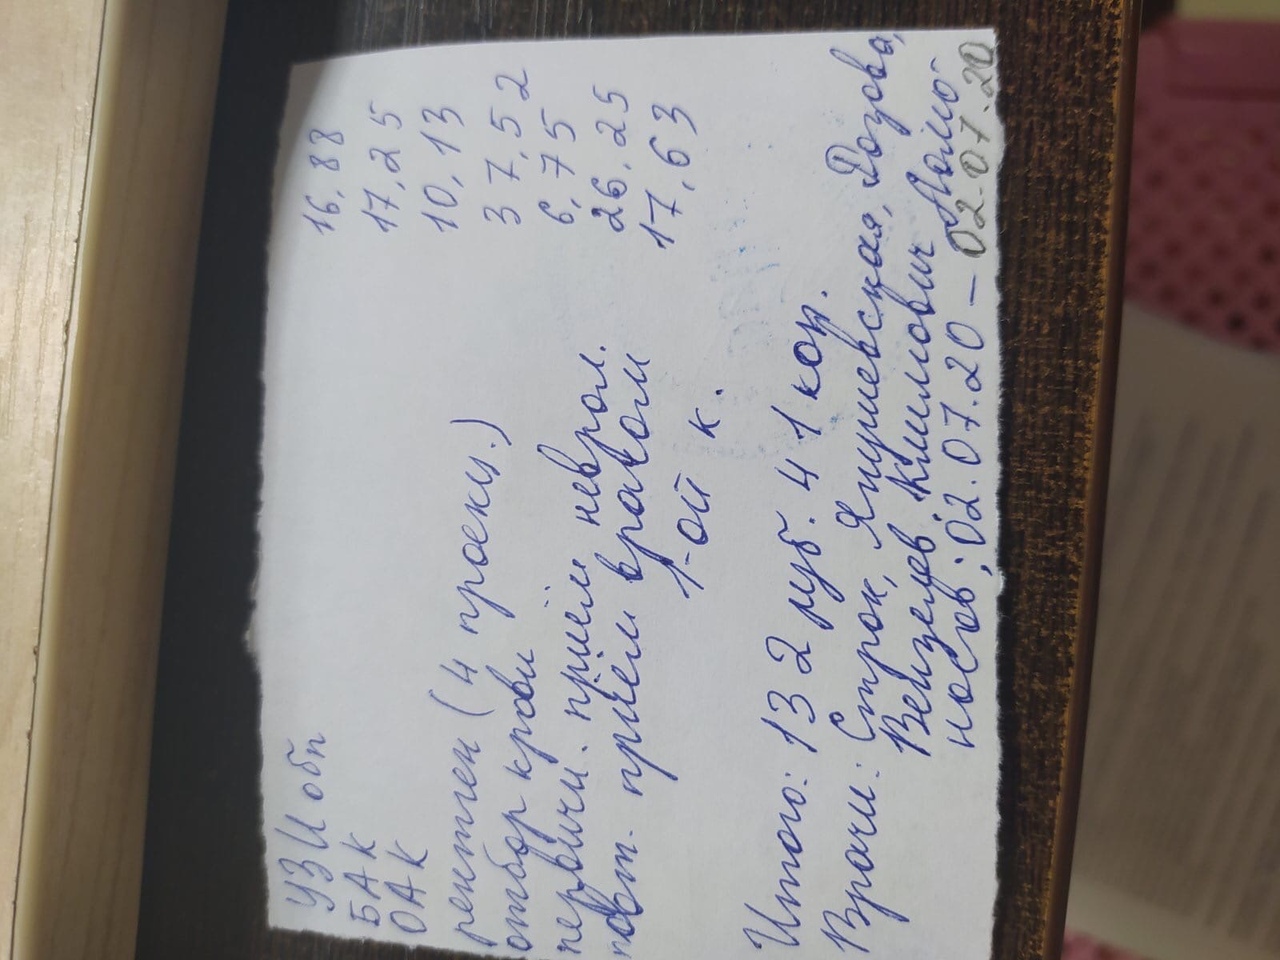 УЗИ обп 16,88
БАК 17,25
ОАК 10,13
рентген (4 проекц.) 37,52
отбор крови 6,75
первичн. приём неврол. 26,25
повт. приём врачом 17,63
1-ой к.
Итого: 132 руб. 41 коп.
Врачи: Строк, Япушевская, Дозова,
Вензелев, Климович Ломо-
носов; 02.07.20 – 02.07.20